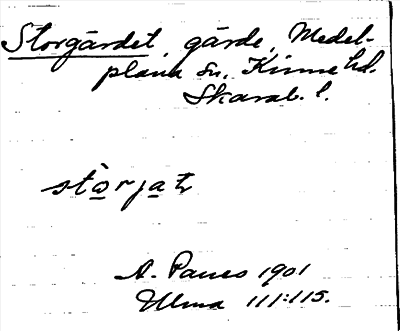 Storgärdet, gärde, Medel-
plana sn. Kinne hd.
Skarab. l.
stòrjat
A. Paues 1901
Ulma 111:115.